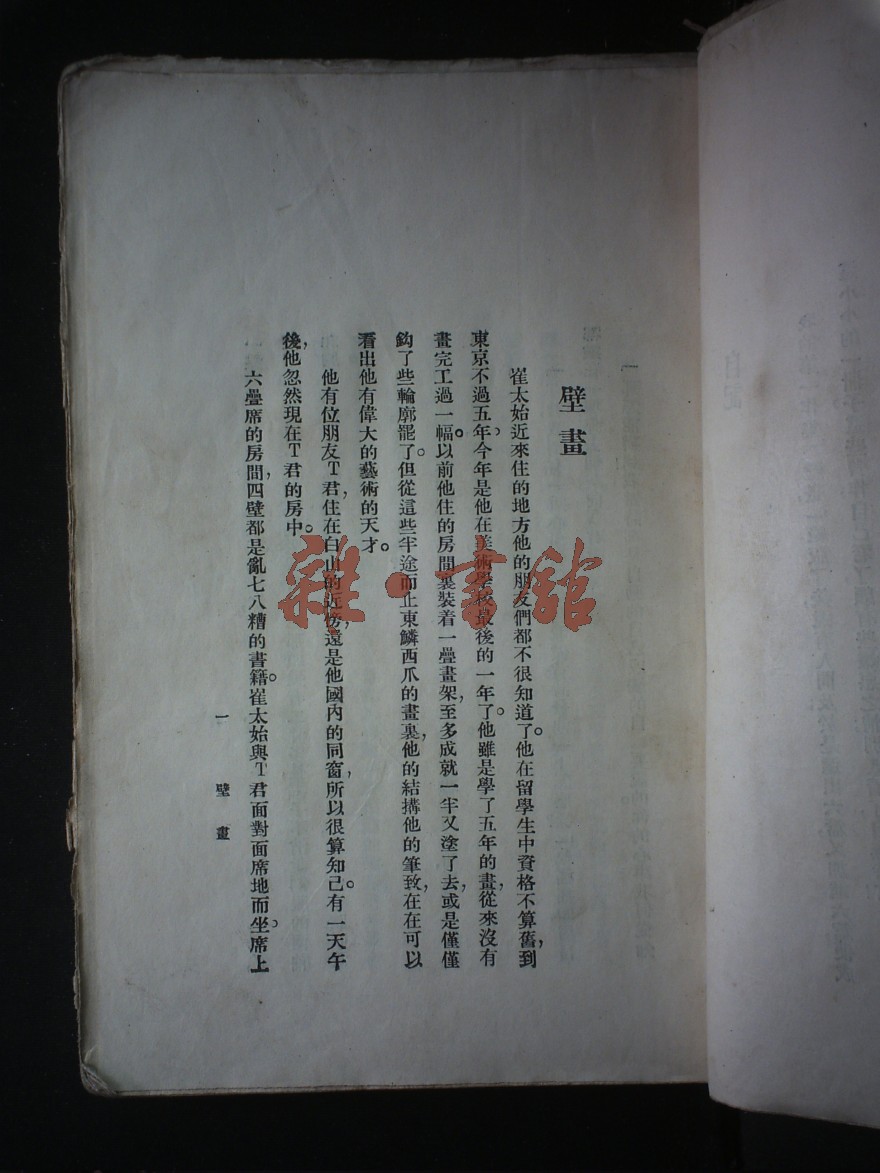 壁畫
崔太始近來住的地方他的朋友們都不很知道了。他在留學生中資格不算舊,到
東京不過五年,今年是他在美術學校最後的一年了。他雖是學了五年的畫,從來沒有
畫完工過一幅。以前他住的房間裏裝着一疊畫架,至多成就一半又塗了去,或是僅僅
鈎了些輪廓罷了。但從這些半途而止東鱗西爪的畫裏,他的結搆他的筆致,在在可以
看出他有偉大的藝術的天才。
他有位朋友T君,住在白山的近傍,還是他國內的同窗,所以很算知己。有一天午
後,他忽然現在T君的房中。
六疊席的房間,四壁都是亂七八糟的書籍。崔太始與T君面對面席地而坐。席上
一 壁畫
雜·書館